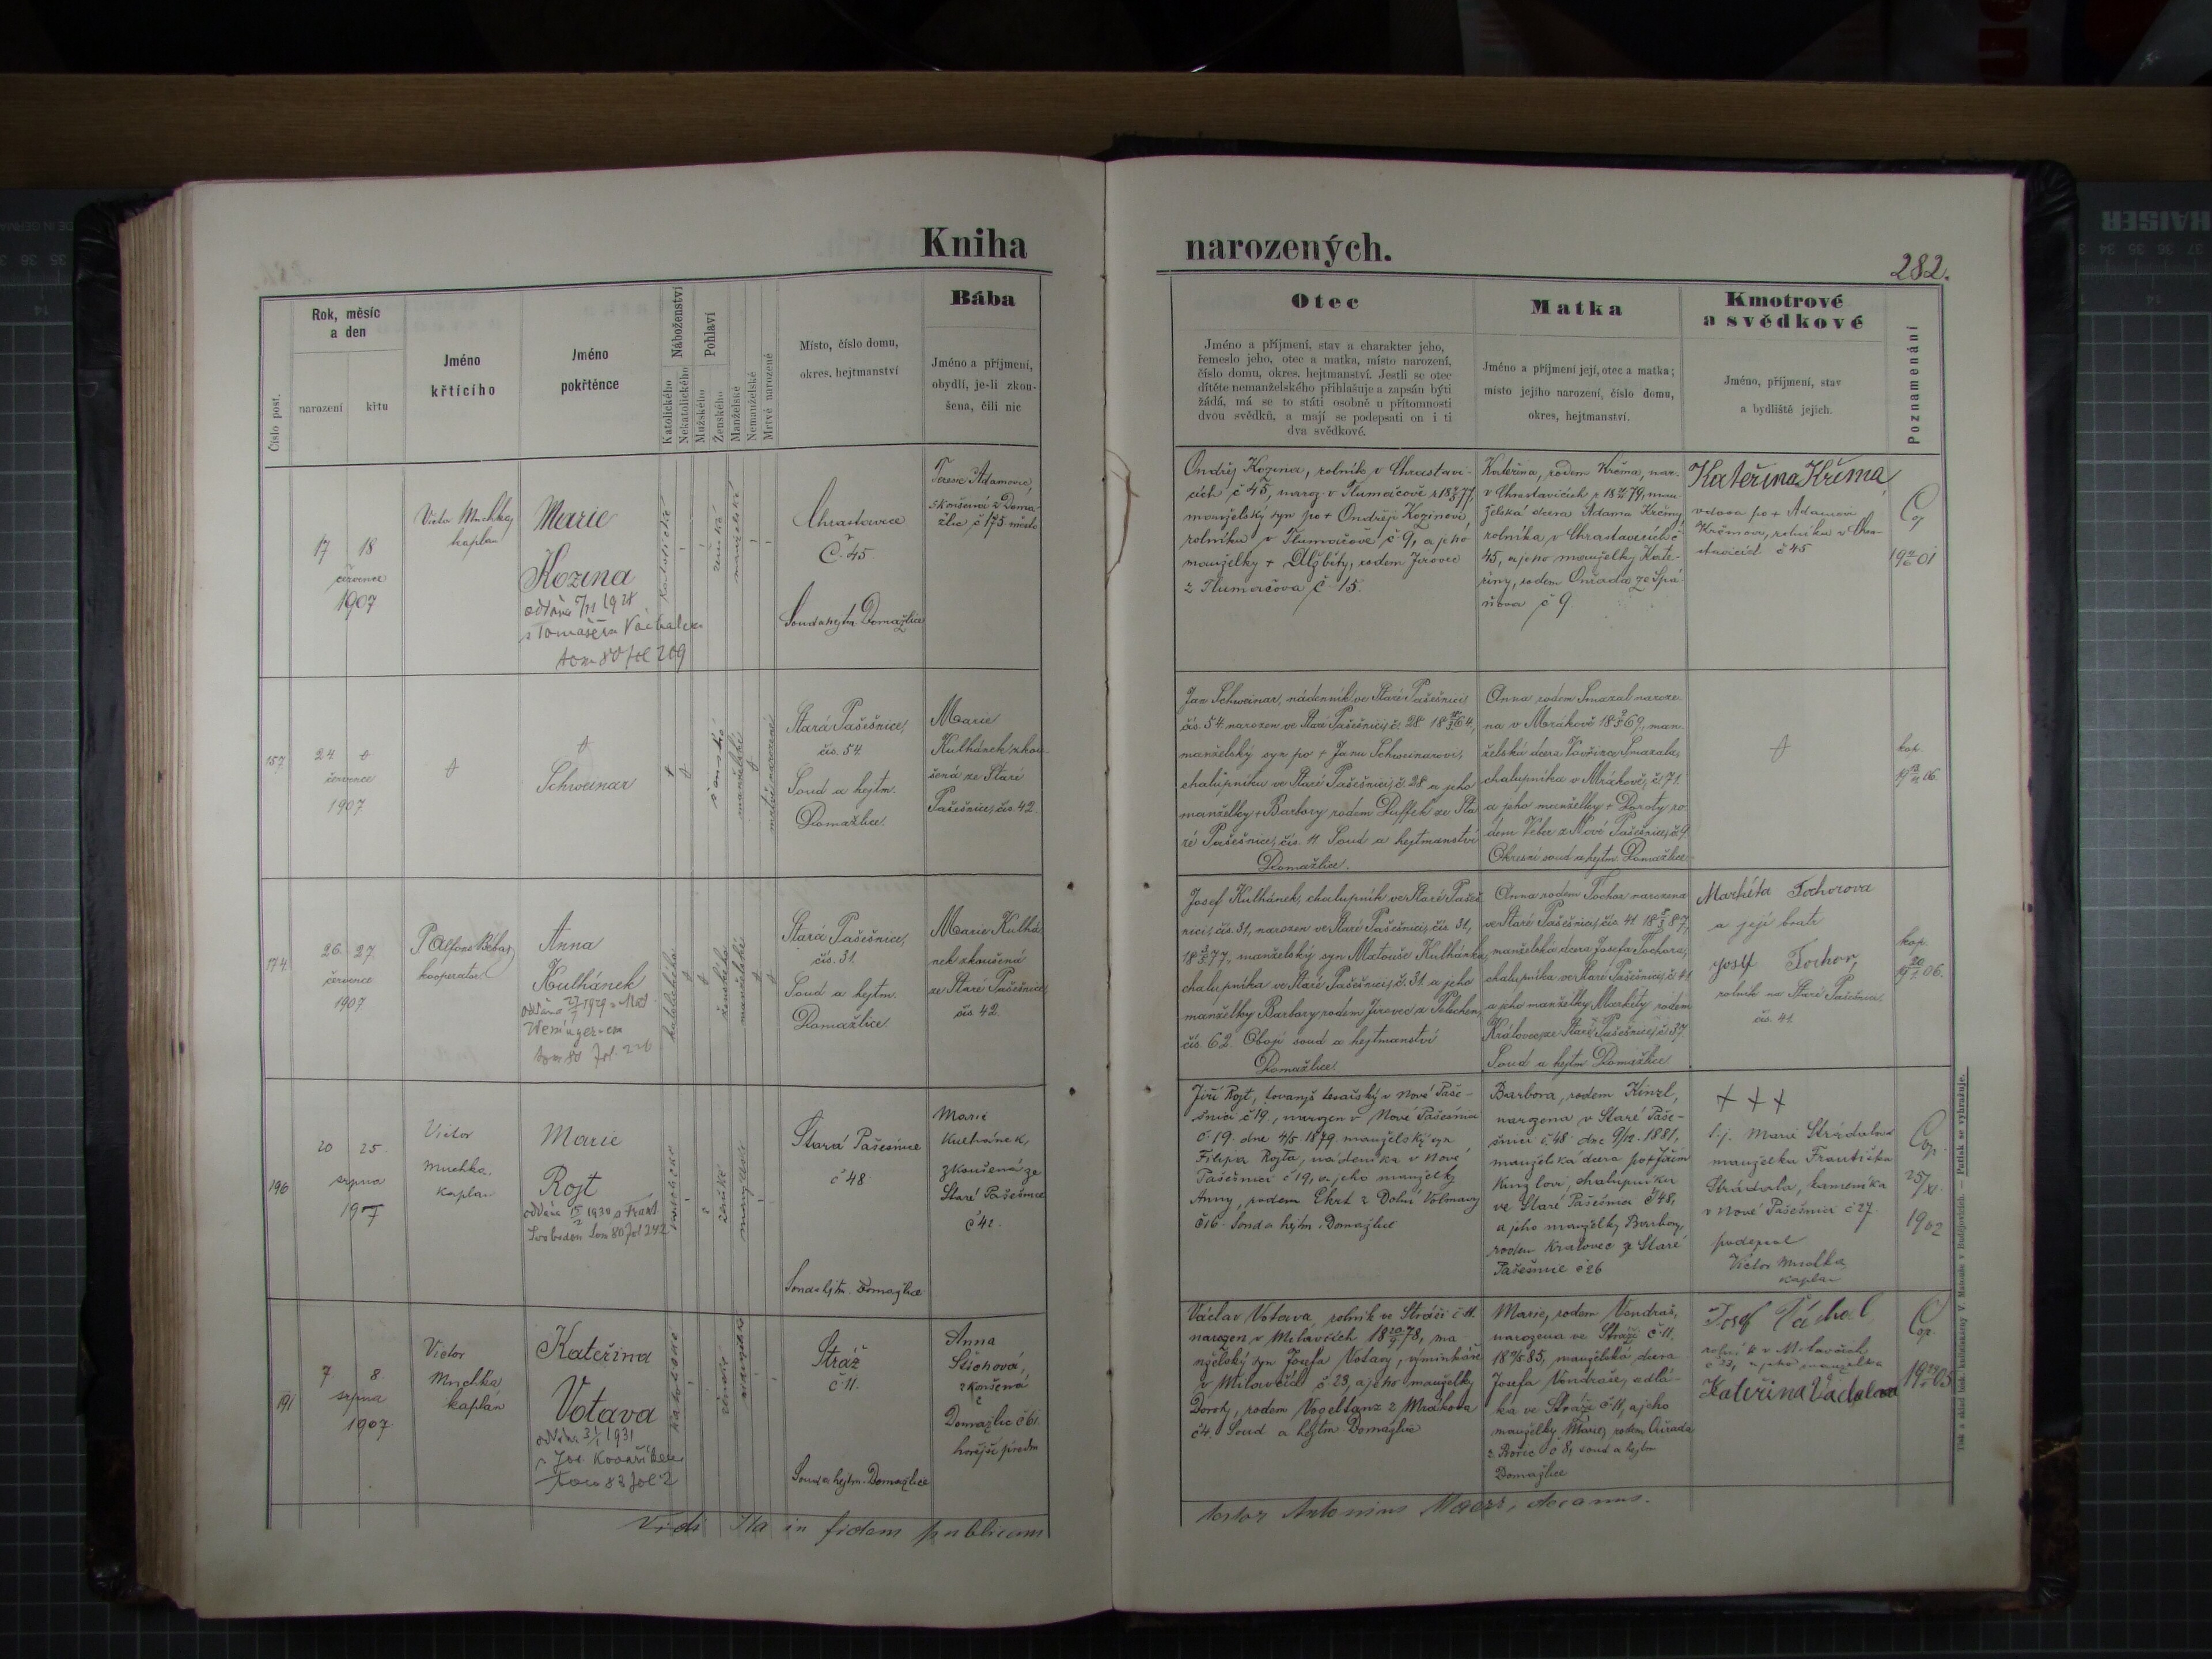 Kniha
narozených.
282.
Číslo post.
Rok, měsíc
a den
narození
křtu
Jméno
křtícího
Jméno
pokřtěnce
Náboženství
Katolického
Nekatolického
Pohlaví
Mužského
Ženského
Manželské
Nemanželské
Mrtvě narozené
Místo, číslo domu,
okres. hejtmanství
Bába
Jméno a příjmení,
obydlí, je-li zkou-
šena, čili nic
Otec
Jméno a příjmení, stav a charakter jeho,
řemeslo jeho, otec a matka, místo narození,
číslo domu, okres. hejtmanství. Jestli se otec
dítěte nemanželského přihlašuje a zapsán býti
žádá, má se to státi osobně u přítomnosti
dvou svědků, a mají se podepsati on i ti
dva svědkové.
Matka
Jméno a příjmení její, otec a matka;
místo jejího narození, číslo domu,
okres, hejtmanství.
Kmotrové
a svědkové
Jméno, příjmení, stav
a bydliště jejich.
Poznamenání
17 18
července
1907
Victor Muchka,
kaplan
Marie
Kozina
oddána 7/11 1928
s Tomášem
tom 80 fol 209
katolické
ženské
manželské
Chrastavice
Č. 45
Soud a hejtm. Domažlice
Terezie Adamovic,
zkoušená z Doma-
žlic č 175 město
Ondřej Kozina, rolník v Chrastavi-
cích č 45, naroz. v Tlumačově 77,
manželský syn po + Ondřeji Kozinovi,
rolníku v Tlumačově č 9, a jeho
manželky + Alžběty, rodem Jírovec
z Tlumačova č 15.
Kateřina, rodem Krčma, nar.
v Chrastavicích 79, man-
želská dcera Adama Krčmy,
rolníka v Chrastavicích č
45, a jeho manželky Kate-
řiny, rodem z Spá-
ňova č 9.
Kateřina Krčma,
vdova po + Adamovi
Krčmovi, rolníku v Chra-
stavicích č 45
Cop
01
157
24
července
1907
Schweinar
ženské
manželské
mrtvě narozené
Stará Pašešnice,
čís. 54.
Soud a hejtm.
Domažlice.
Marie
Kulhánek zkou-
šená ze Staré
Pašešnice, čís. 42
Jan Schweinar, nádenník ve Staré Pašešnici,
čís. 54 narozen ve Staré Pašešnici, č. 28 64,
manželský syn po + Janu Schweinarovi,
chalupníku ve Staré Pašešnici, č. 28 a jeho
manželky + Barbory rodem Duffek ze Sta-
ré Pašešnice, čís. 11. Soud a hejtmanství
Domažlice.
Anna rodem Smazal naroze-
na v Mrákově 69, man-
želská dcera Vavřince Smazala,
chalupníka v Mrákově, č. 71.
a jeho manželky + Doroty ro-
dem Veber z Nové Pašešnice, č. 9.
Okresní soud a hejtm. Domažlice.
kop.
06.
174
26. 27.
července
1907
P. Alfons
kooperator.
Anna
Kulhánek
tom 80 fol.
katolického
ženského
manželské
Stará Pašešnice,
čís. 31.
Soud a hejtm.
Domažlice.
Marie Kulhá-
nek zkoušená
ze Staré Pašešnice
čís. 42.
Josef Kulhánek, chalupník ve Staré Pašeš-
nici, čís. 31, narozen ve Staré Pašešnici, čís. 31,
77, manželský syn Matouše Kulhánka,
chalupníka ve Staré Pašešnici, č. 31. a jeho
manželky Barbory rodem Jírovec z
čís. 62. Obojí soud a hejtmanství
Domažlice.
Anna rodem Tochor narozena
ve Staré Pašešnici, čís. 41 87,
manželská dcera Josefa Tochora,
chalupníka ve Staré Pašešnici, č. 41
a jeho manželky Markéty rodem
Královec ze Staré Pašešnice, č. 37.
Soud a hejtm. Domažlice.
Markéta Tochorova
a její bratr
Josef Tochor,
rolník na Staré Pašešnici,
čís. 41.
kop.
06.
196
20 25.
srpna
1907
Victor
Muchka,
kaplan
Marie
Rojt
oddána 1930 s Frant.
Svobodou tom 80 fol 242
ženské
manželské
Stará Pašešnice
č 48
Soud a hejtm. Domažlice
Marie
Kulhánek,
zkoušená ze
Staré Pašešnice
č 42.
Jiří Rojt, tovaryš tesařský v Nové Paše-
šnici č 19, narozen v Nové Pašešnici
č. 19. dne 4/5 1879. manželský syn
Filipa Rojta, nádeníka v Nové
Pašešnici č 19, a jeho manželky
Anny, rodem Ekrt z Dolní Volmavy
č 16. Soud a hejtm. Domažlice
Barbora, rodem Kinzl,
narozena v Staré Paše-
šnici č 48. dne 9/12. 1881,
manželská dcera po +
Kinzlovi, chalupníku
ve Staré Pašešnici č 48,
a jeho manželky Barbory,
rodem Kralovec ze Staré
Pašešnice č 26
+ + +
t. j. Marie Strádalová
manželka Františka
Strádala, kameníka
v Nové Pašešnici č 27.
podepsal
Victor Muchka,
kaplan
Cop.
25/XI.
1902
191
7 8.
srpna
1907.
Victor
Muchka
kaplán
Kateřina
Votava
oddána 1931
s Jos.
tom 83 fol 2
ženské
manželské
Stráž
č 11.
Soud a hejtm. Domažlice
Anna
Stichová,
zkoušená
z
Domažlic č 61.
hořejší předm
Václav Votava, rolník ve Stráži č 11.
narozen v Milavčích 78, ma-
nželský syn Josefa Votavy, výminkáře
v Milavčích č 23, a jeho manželky
Doroty, rodem Vogeltanz z Mrákova
č 4. Soud a hejtm Domažlice
Marie, rodem Vondraš,
narozena ve Stráži č 11.
85, manželská dcera
Josefa Vondraše, sedlá-
ka ve Stráži č 11, a jeho
manželky Marie, rodem
z Bořic č 8, soud a hejtm
Domažlice
Josef Váchal,
rolník v Milavčích
č 23, a jeho manželka
Kateřina Váchalova
Cop.
05
Vidi Ita in fidem publicam
testor Antonius decanus.
Tisk a sklad knih. knihtiskárny V. v Budějovicích. — Patisk se vyhražuje.